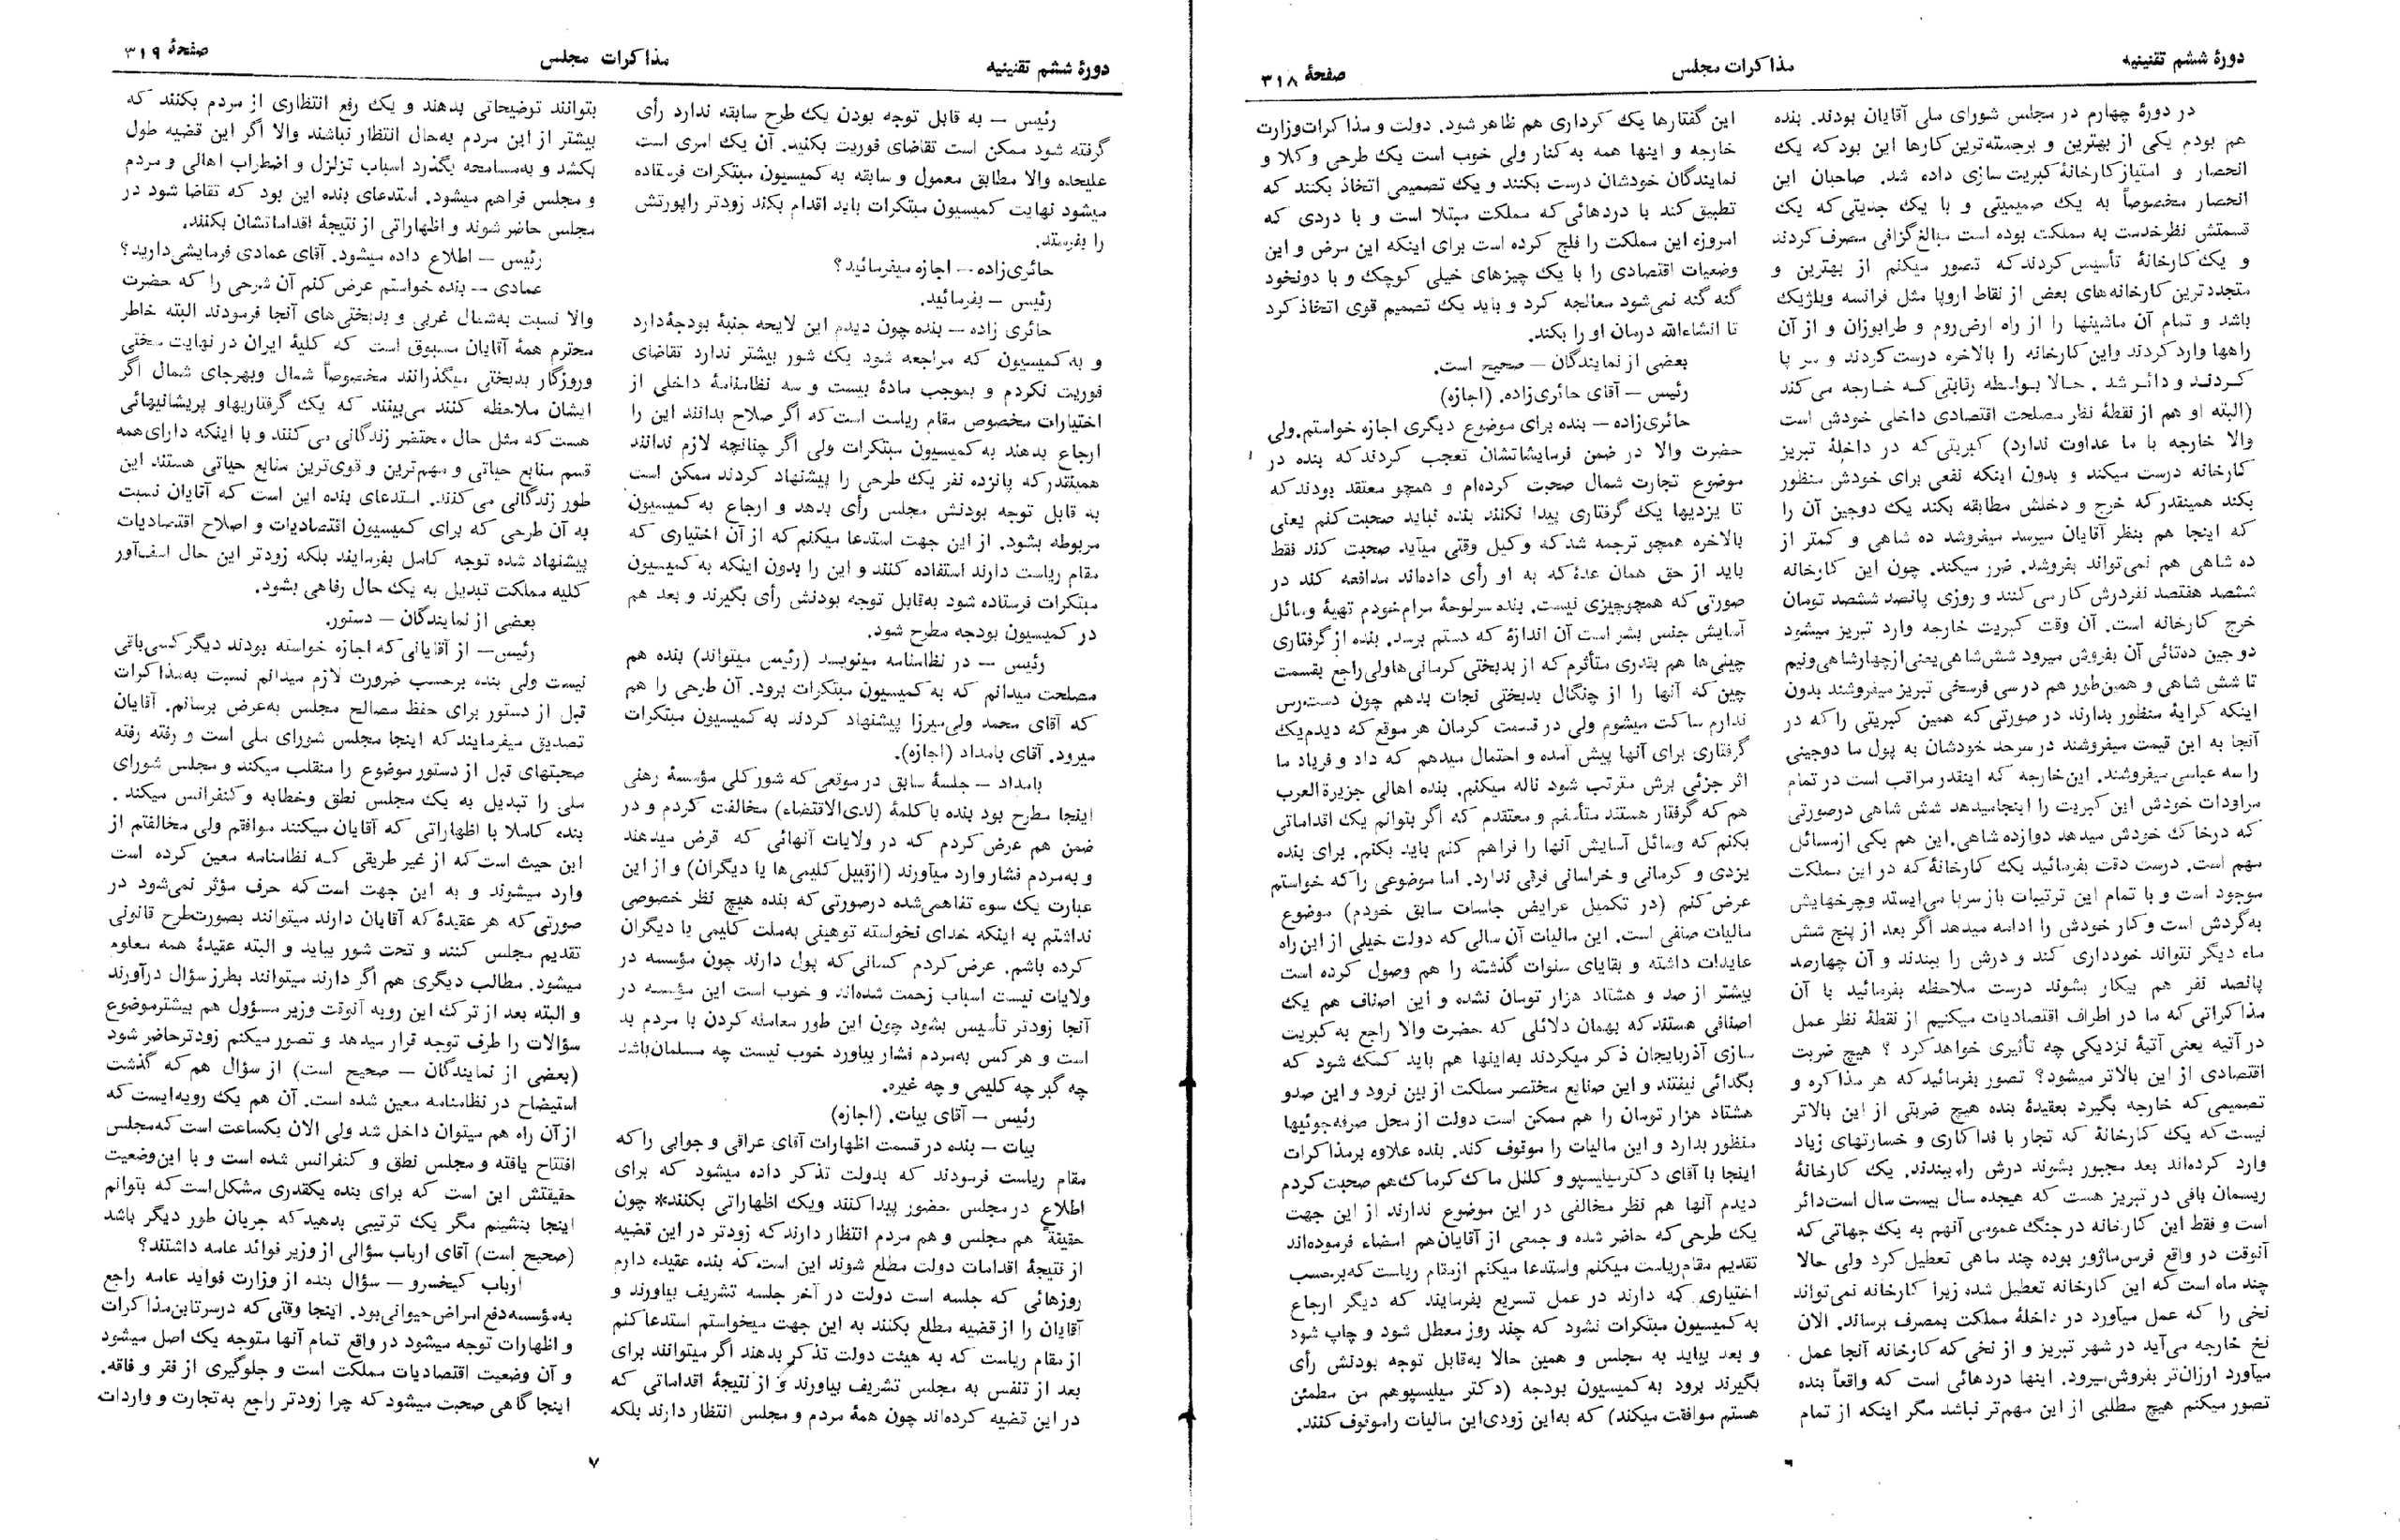 دورهٔ ششم تقنینیه
مذاکرات مجلس
صفحهٔ ۳۱۸
در دورهٔ چهارم در مجلس شورای ملی آقایان بودند. بنده
هم بودم یکی از بهترین و برجسته‌ترین کارها این بود که یک
انحصار و امتیاز کارخانهٔ کبریت سازی داده شد. صاحبان این
انحصار مخصوصاً به یک صمیمیتی و با یک جدیتی که یک
قسمتش نظر خدمت به مملکت بوده است مبالغ گزافی مصرف کردند
و یک کارخانهٔ تأسیس کردند که تصور میکنم از بهترین و
متجددترین کارخانه‌های بعض از نقاط اروپا مثل فرانسه و بلژیک
باشد و تمام آن ماشینها را از راه ارض روم و طرابوزان و از آن
راهها وارد کردند و این کارخانه را بالاخره درست کردند و سر پا
کردند و دائر شد. حالا بواسطه رقابتی که خارجه می کند
(البته او هم از نقطهٔ نظر مصلحت اقتصادی داخلی خودش است
والا خارجه با ما عداوت ندارد) کبریتی که در داخلهٔ تبریز
کارخانه درست میکند و بدون اینکه نفعی برای خودش منظور
بکند همینقدر که خرج و دخلش مطابقه بکند یک دوجین آن را
که اینجا هم بنظر آقایان میرسد میفروشد ده شاهی و کمتر از
ده شاهی هم نمی‌تواند بفروشد. ضرر میکند. چون این کارخانه
ششصد هفتصد نفر درش کار می کنند و روزی پانصد ششصد تومان
خرج کارخانه است. آن وقت کبریت خارجه وارد تبریز میشود
دوجین ده‌تائی آن بفروش میرود شش شاهی یعنی از چهار شاهی و نیم
تا شش شاهی و همین طور هم در سی فرسخی تبریز میفروشند بدون
اینکه کرایهٔ منظور بدارند در صورتی که همین کبریتی را که در
آنجا به این قیمت میفروشند در سرحد خودشان به پول ما دوجینی
را سه عباسی میفروشند. این خارجه که اینقدر مراقب است در تمام
مراودات خودش این کبریت را اینجا میدهد شش شاهی در صورتی
که در خاک خودش میدهد دوازده شاهی. این هم یکی از مسائل
مهم است. درست دقت بفرمائید یک کارخانهٔ که در این مملکت
موجود است و با تمام این ترتیبات باز سر پا می ایستد و چرخهایش
به گردش است و کار خودش را ادامه میدهد اگر بعد از پنج شش
ماه دیگر نتواند خودداری کند و درش را ببندند و آن چهارصد
پانصد نفر هم بیکار بشوند درست ملاحظه بفرمائید با آن
مذاکراتی که ما در اطراف اقتصادیات میکنیم از نقطهٔ نظر عمل
در آتیه یعنی آتیهٔ نزدیکی چه تأثیری خواهد کرد؟ هیچ ضربت
اقتصادی از این بالاتر میشود؟ تصور بفرمائید که هر مذاکره و
تصمیمی که خارجه بگیرد بعقیدهٔ بنده هیچ ضربتی از این بالاتر
نیست که یک کارخانهٔ که تجار با فداکاری و خسارتهای زیاد
وارد کرده‌اند بعد مجبور بشوند درش را ببندند. یک کارخانهٔ
ریسمان بافی در تبریز هست که هیجده سال بیست سال است دائر
است و فقط این کارخانه در جنگ عمومی آنهم به یک جهاتی که
آنوقت در واقع فرس ماژور بوده چند ماهی تعطیل کرد ولی حالا
چند ماه است که این کارخانه تعطیل شده زیرا کارخانه نمی‌تواند
نخی را که عمل میآورد در داخلهٔ مملکت بمصرف برساند. الان
نخ خارجه می‌آید در شهر تبریز و از نخی که کارخانه آنجا عمل
میآورد ارزان‌تر بفروش میرود. اینها دردهائی است که واقعاً بنده
تصور میکنم هیچ مطلبی از این مهم‌تر نباشد مگر اینکه از تمام
این گفتارها یک کرداری هم ظاهر شود. دولت و مذاکرات وزارت
خارجه و اینها همه به کنار ولی خوب است یک طرحی وکلا و
نمایندگان خودشان درست بکنند و یک تصمیمی اتخاذ بکنند که
تطبیق کند با دردهائی که مملکت مبتلا است و با دردی که
امروزه این مملکت را فلج کرده است برای اینکه این مرض و این
وضعیات اقتصادی را با یک چیزهای خیلی کوچک و با دو نخود
گنه گنه نمی‌شود معالجه کرد و باید یک تصمیم قوی اتخاذ کرد
تا انشاءالله درمان او را بکند.
بعضی از نمایندگان — صحیح است.
رئیس — آقای حائری‌زاده. (اجازه)
حائری‌زاده — بنده برای موضوع دیگری اجازه خواستم. ولی
حضرت والا در ضمن فرمایشاتشان تعجب کردند که بنده در
موضوع تجارت شمال صحبت کرده‌ام و همچو معتقد بودند که
تا یزدیها یک گرفتاری پیدا نکنند بنده نباید صحبت کنم یعنی
بالاخره همچو ترجمه شد که وکیل وقتی میآید صحبت کند فقط
باید از حق همان عدهٔ که به او رأی داده‌اند مدافعه کند در
صورتی که همچو چیزی نیست. بنده سرلوحهٔ مرام خودم تهیهٔ وسائل
آسایش جنس بشر است آن اندازهٔ که دستم برسد. بنده از گرفتاری
چینی‌ها هم بقدری متأثرم که از بدبختی کرمانی ها ولی راجع بقسمت
چین که آنها را از چنگال بدبختی نجات بدهم چون دست‌رس
ندارم ساکت میشوم ولی در قسمت کرمان هر موقع که دیدم یک
گرفتاری برای آنها پیش آمده و احتمال میدهم که داد و فریاد ما
اثر جزئی برش مترتب شود ناله میکنم. بنده اهالی جزیرة العرب
هم که گرفتار هستند متأسفم و معتقدم که اگر بتوانم یک اقداماتی
بکنم که وسائل آسایش آنها را فراهم کنم باید بکنم. برای بنده
یزدی و کرمانی و خراسانی فرقی ندارد. اما موضوعی را که خواستم
عرض کنم (در تکمیل عرایض جلسات سابق خودم) موضوع
مالیات صنفی است. این مالیات آن سالی که دولت خیلی از این راه
عایدات داشته و بقایای سنوات گذشته را هم وصول کرده است
بیشتر از صد و هشتاد هزار تومان نشده و این اصناف هم یک
اصنافی هستند که بهمان دلائلی که حضرت والا راجع به کبریت
سازی آذربایجان ذکر میکردند به‌اینها هم باید کمک شود که
بگدائی نیفتند و این صنایع مختصر مملکت از بین نرود و این صد و
هشتاد هزار تومان را هم ممکن است دولت از محل صرفه‌جوئیها
منظور بدارد و این مالیات را موقوف کند. بنده علاوه بر مذاکرات
اینجا با آقای دکتر میلیسپو و کلنل ماک کرماک هم صحبت کردم
دیدم آنها هم نظر مخالفی در این موضوع ندارند از این جهت
یک طرحی که حاضر شده و جمعی از آقایان هم امضاء فرموده‌اند
تقدیم مقام ریاست میکنم و استدعا میکنم از مقام ریاست که بر حسب
اختیاری که دارند در عمل تسریع بفرمایند که دیگر ارجاع
به کمیسیون مبتکرات نشود که چند روز معطل شود و چاپ شود
و بعد بیاید به مجلس و همین حالا به‌قابل توجه بودنش رأی
بگیرند برود به کمیسیون بودجه (دکتر میلیسپو هم من مطمئن
هستم موافقت میکند) که به‌این زودی این مالیات را موقوف کنند.
۶
دورهٔ ششم تقنینیه
مذاکرات مجلس
صفحهٔ ۳۱۹
رئیس — به قابل توجه بودن یک طرح سابقه ندارد رأی
گرفته شود ممکن است تقاضای فوریت بکنید. آن یک امری است
علیحده والا مطابق معمول و سابقه به کمیسیون مبتکرات فرستاده
میشود نهایت کمیسیون مبتکرات باید اقدام بکند زودتر راپورتش
را بفرستد.
حائری‌زاده — اجازه میفرمائید؟
رئیس — بفرمائید.
حائری زاده — بنده چون دیدم این لایحه جنبهٔ بودجهٔ دارد
و به کمیسیون که مراجعه شود یک شور بیشتر ندارد تقاضای
فوریت نکردم و بموجب مادهٔ بیست و سه نظامنامهٔ داخلی از
اختیارات مخصوص مقام ریاست است که اگر صلاح بدانند این را
ارجاع بدهند به کمیسیون مبتکرات ولی اگر چنانچه لازم ندانند
همینقدر که پانزده نفر یک طرحی را پیشنهاد کردند ممکن است
به قابل توجه بودنش مجلس رأی بدهد و ارجاع به کمیسیون
مربوطه بشود. از این جهت استدعا میکنم که از آن اختیاری که
مقام ریاست دارند استفاده کنند و این را بدون اینکه به کمیسیون
مبتکرات فرستاده شود به‌قابل توجه بودنش رأی بگیرند و بعد هم
در کمیسیون بودجه مطرح شود.
رئیس — در نظامنامه مینویسد (رئیس میتواند) بنده هم
مصلحت میدانم که به کمیسیون مبتکرات برود. آن طرحی را هم
که آقای محمد ولی میرزا پیشنهاد کردند به کمیسیون مبتکرات
میرود. آقای بامداد (اجازه).
بامداد — جلسهٔ سابق در موقعی که شور کلی مؤسسهٔ رهنی
اینجا مطرح بود بنده با کلمهٔ (لدی‌الاقتضاء) مخالفت کردم و در
ضمن هم عرض کردم که در ولایات آنهائی که قرض میدهند
و به‌مردم فشار وارد میآورند (از قبیل کلیمی ها یا دیگران) و از این
عبارت یک سوء تفاهمی شده در صورتی که بنده هیچ نظر خصوصی
نداشتم به اینکه خدای نخواسته توهینی به‌ملت کلیمی یا دیگران
کرده باشم. عرض کردم کسانی که پول دارند چون مؤسسه در
ولایات نیست اسباب زحمت شده‌اند و خوب است این مؤسسه در
آنجا زودتر تأسیس بشود چون این طور معامله کردن با مردم بد
است و هر کس به‌مردم فشار بیاورد خوب نیست چه مسلمان باشد
چه گبر چه کلیمی و چه غیره.
رئیس — آقای بیات. (اجازه)
بیات — بنده در قسمت اظهارات آقای عراقی و جوابی را که
مقام ریاست فرمودند که بدولت تذکر داده میشود که برای
اطلاع در مجلس حضور پیدا کنند و یک اظهاراتی بکنند* چون
حقیقةً هم مجلس و هم مردم انتظار دارند که زودتر در این قضیه
از نتیجهٔ اقدامات دولت مطلع شوند این است که بنده عقیده دارم
روزهائی که جلسه است دولت در آخر جلسه تشریف بیاورند و
آقایان را از قضیه مطلع بکنند به این جهت میخواستم استدعا کنم
از مقام ریاست که به هیئت دولت تذکر بدهند اگر میتوانند برای
بعد از تنفس به مجلس تشریف بیاورند و از نتیجهٔ اقداماتی که
در این قضیه کرده‌اند چون همهٔ مردم و مجلس انتظار دارند بلکه
بتوانند توضیحاتی بدهند و یک رفع انتظاری از مردم بکنند که
بیشتر از این مردم به‌حال انتظار نباشند والا اگر این قضیه طول
بکشد و به‌مسامحه بگذرد اسباب تزلزل و اضطراب اهالی و مردم
و مجلس فراهم میشود. استدعای بنده این بود که تقاضا شود در
مجلس حاضر شوند و اظهاراتی از نتیجهٔ اقداماتشان بکنند.
رئیس — اطلاع داده میشود. آقای عمادی فرمایشی دارید؟
عمادی — بنده خواستم عرض کنم آن شرحی را که حضرت
والا نسبت به‌شمال غربی و بدبختی های آنجا فرمودند البته خاطر
محترم همهٔ آقایان مسبوق است که کلیهٔ ایران در نهایت سختی
و روزگار بدبختی میگذرانند مخصوصاً شمال و بهرجای شمال اگر
ایشان ملاحظه کنند می‌بینند که یک گرفتاریها و پریشانیهائی
هست که مثل حال محتضر زندگانی می کنند و با اینکه دارای همه
قسم منابع حیاتی و مهم‌ترین و قوی‌ترین منابع حیاتی هستند این
طور زندگانی می کنند. استدعای بنده این است که آقایان نسبت
به آن طرحی که برای کمیسیون اقتصادیات و اصلاح اقتصادیات
پیشنهاد شده توجه کامل بفرمایند بلکه زودتر این حال اسف‌آور
کلیه مملکت تبدیل به یک حال رفاهی بشود.
بعضی از نمایندگان — دستور.
رئیس— از آقایانی که اجازه خواسته بودند دیگر کسی باقی
نیست ولی بنده برحسب ضرورت لازم میدانم نسبت به‌مذاکرات
قبل از دستور برای حفظ مصالح مجلس به‌عرض برسانم. آقایان
تصدیق میفرمایند که اینجا مجلس شورای ملی است و رفته رفته
صحبتهای قبل از دستور موضوع را منقلب میکند و مجلس شورای
ملی را تبدیل به یک مجلس نطق و خطابه و کنفرانس میکند.
بنده کاملا با اظهاراتی که آقایان میکنند موافقم ولی مخالفتم از
این حیث است که از غیر طریقی که نظامنامه معین کرده است
وارد میشوند و به این جهت است که حرف مؤثر نمی‌شود در
صورتی که هر عقیدهٔ که آقایان دارند میتوانند بصورت طرح قانونی
تقدیم مجلس کنند و تحت شور بیاید و البته عقیدهٔ همه معلوم
میشود. مطالب دیگری هم اگر دارند میتوانند بطرز سؤال درآورند
و البته بعد از ترک این رویه آنوقت وزیر مسؤول هم بیشتر موضوع
سؤالات را طرف توجه قرار میدهد و تصور میکنم زودتر حاضر شود
(بعضی از نمایندگان — صحیح است) از سؤال هم که گذشت
استیضاح در نظامنامه معین شده است. آن هم یک رویه‌ایست که
از آن راه هم میتوان داخل شد ولی الان یکساعت است که مجلس
افتتاح یافته و مجلس نطق و کنفرانس شده است و با این وضعیت
حقیقتش این است که برای بنده یکقدری مشکل است که بتوانم
اینجا بنشینم مگر یک ترتیبی بدهید که جریان طور دیگر باشد
(صحیح است) آقای ارباب سؤالی از وزیر فوائد عامه داشتند؟
ارباب کیخسرو — سؤال بنده از وزارت فواید عامه راجع
به‌مؤسسه دفع امراض حیوانی بود. اینجا وقتی که در سرتاین مذاکرات
و اظهارات توجه میشود در واقع تمام آنها متوجه یک اصل میشود
و آن وضعیت اقتصادیات مملکت است و جلوگیری از فقر و فاقه.
اینجا گاهی صحبت میشود که چرا زودتر راجع به‌تجارت و واردات
۷